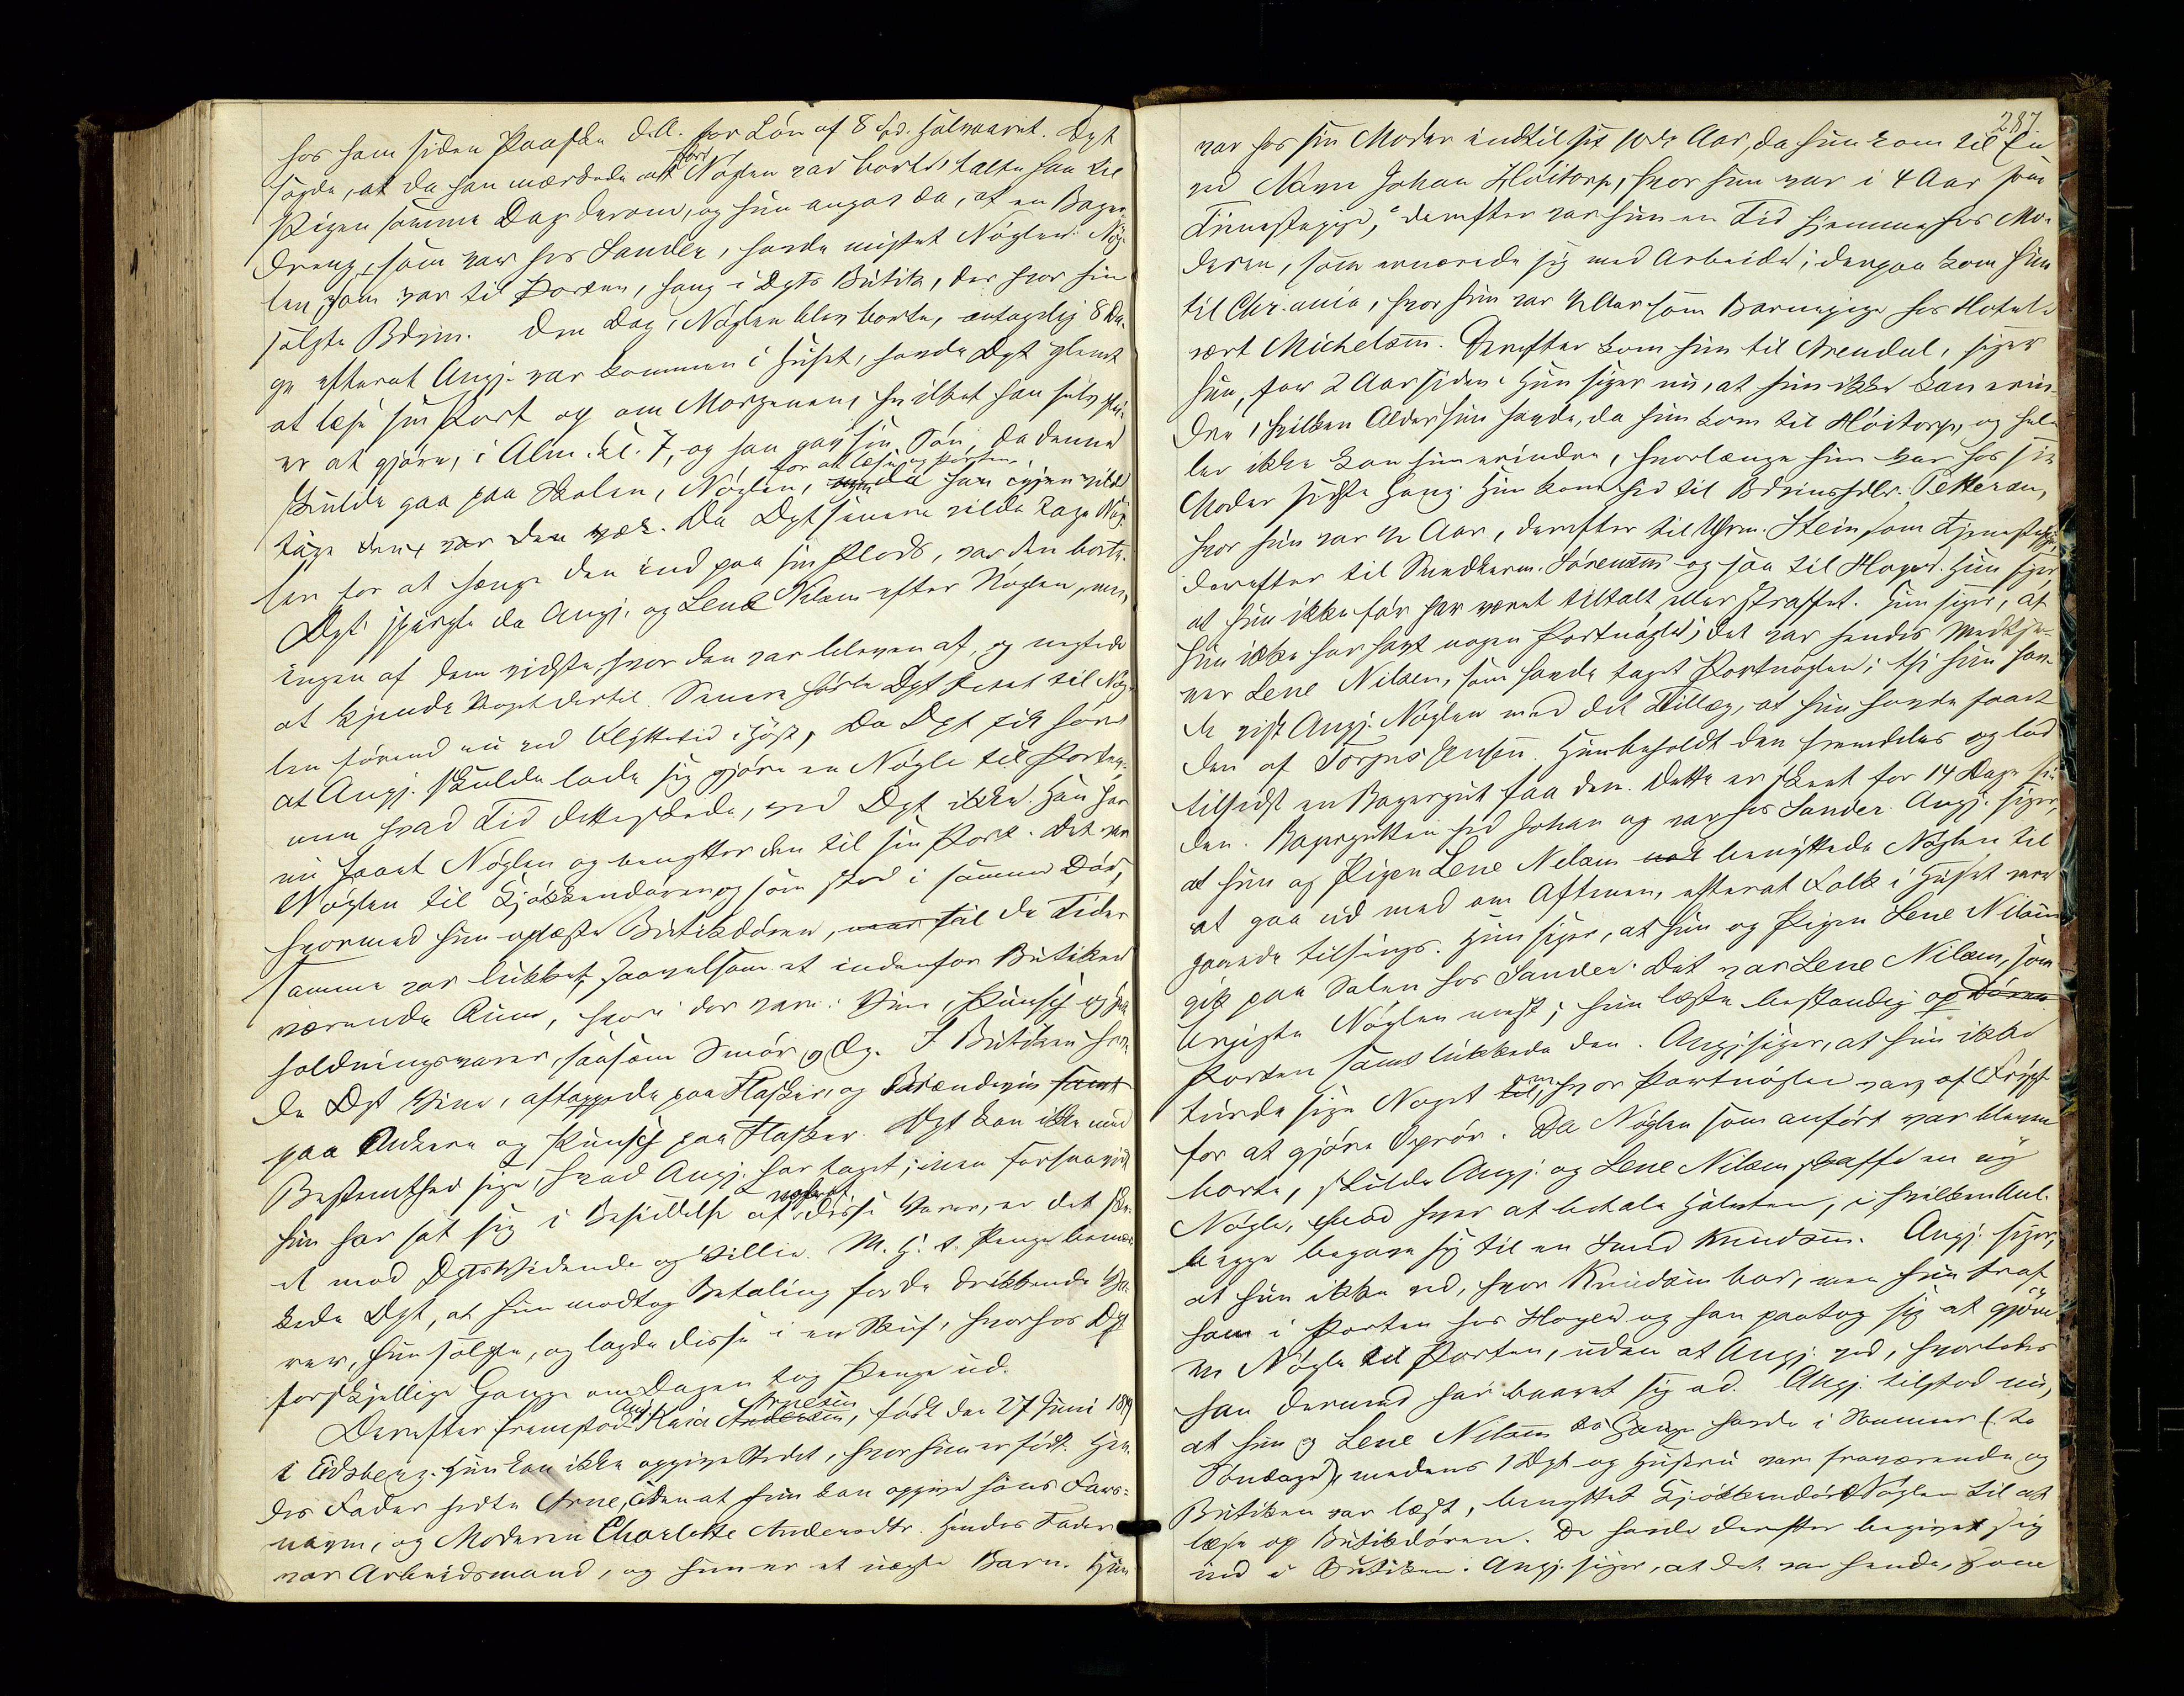 hos ham siden Paaske d. A. for Løn af 8 Spd. Halvaaret. Dpt
sagde, at da han mærkede at Nøglen var borte, talte han til
Pigen samme Dag derom, og hun angav da, at en Bager-
dreng, som var hos Sander, havde mistet Nøglen. Nøg-
len som var til Porten, hang i Dpts Butik, der hvor hun
solgte Brdvin. Den Dag, Nøglen blev borte, antagelig 8 Da-
ge efterat Angj. var kommen i Huset, havde Dpt glemt
at læse sin Port op om Morgenen, hvilket han selv plei-
er at gjøre, i Alm. Kl. 7, og han gav sin Søn, da denne
for at læse op Porten,
skulde gaa paa Skolen, Nøglen, da han igjen vilde
tage den, var den væk. Da Dpt senere vilde tage Nøg-
len for at hænge den ind paa sin Plads, var den borte.
Dpt spurgte da Angj. og Lene Nilsen efter Nøglen, men
ingen af dem vidste, hvor den var bleven af, og negtede
at kjende Noget dertil. Senere hørte Dpt Intet til Nøg-
len førend nu ved Flyttetid i Høst, da Dpt fik høre
at Angj. skulde lade sig gjøre en Nøgle til Porten,
men hvad Tid dette skede, ved Dpt ikke. Han har
nu faaet Nøglen og benytter den til sin Port. Det var
Nøglen til Kjøkkendøren og som stod i samme Dør,
hvormed hun oplæste Butikdøren, til de Tider
samme var lukket, saavelsom et indenfor Butiken
værende Rum, hvori der var: Vine, Punsch og Hus-
holdningsvarer, saasom Smør o Dg. I Butiken hav-
de Dpt Vine, aftappede paa Flasker, og Brændevin
paa Ankere og Punsch paa Flasker. Dpt kan ikke med
Bestemthed sige, hvad Angj. har taget; men forsaavidt
hun har sat sig i Besiddelse af noget disse Varer, er det ske-
et mod Dpts Vidende og Villie. M. H. t. Penge bemær-
kede Dpt, at hun modtog Betaling for de drikkende Va-
rer, hun solgte, og lagde disse i en Skuf, hvorhos Dpt
forskjellige Gange om Dagen tog Penge ud.
Arnesen
Derefter fremstod Angj. Karia Andersen, født den 27 Juni 1849
i Eidsberg. Hun kan ikke opgive Stedet, hvor hun er født. Hen-
des Fader hedte Arne, uden at hun kan opgive hans Fars-
navn, og Moderen Charlotte Andersdtr. Hendes Fader
var Arbeidsmand, og hun er et uægte Barn. Hun
287.
var hos sin Moder indtil sit 10de Aar, da hun kom til En
ved Navn Johan Høitorp, hvor hun var i 4 Aar som
Tjenestepige, derefter var hun en Tid hjemme hos Mo-
deren, som ernærede sig med Arbeide; derpaa kom hun
til Chr.ania, hvor hun var ½ Aar som Barnepige hos Hotel-
vært Michelsen. Derefter kom hun til Arendal, siger
hun, for 2 Aar siden. Hun siger nu, at hun ikke kan erin-
dre, hvilken Alder hun havde, da hun kom til Høitorp, og hel-
ler ikke kan hun erindre, hvorlænge hun var hos sin
Moder sidste Gang. Hun kom hid til Brdvinshdlr. Pettersen,
hvor hun var ½ Aar, derefter til Uhrm. Stein som Tjenestepige,
derefter til Snedkerm. Sørensen og saa til Høyer. Hun siger,
at hun ikke før har været tiltalt eller straffet. Hun siger, at
hun ikke har havt nogen Portnøgle; det var hendes Medtje-
ner Lene Nilsen, som havde taget Portnøglen; thi hun hav-
de vist Angj. Nøglen med det Tillæg, at hun havde faaet
den af Torgus Jensen. Hun beholdt den fremdeles og lod
tilsidst en Bagergut faa den. Dette er skeet for 14 Dage si-
den. Bagergutten hed Johan og var hos Sander. Angj. siger,
at hun og Pigen Lene Nilsen benyttede Nøglen til
at gaa ud med om Aftenen, efterat Folk i Huset vare
gaaede tilsengs. Hun siger, at hun og Pigen Lene Nilsen
gik paa Salen hos Sander. Det var Lene Nilsen, som
brugte Nøglen mest; hun læste bestandig op Døren
Porten samt lukkede den. Angj. siger, at hun ikke
turde sige Noget om, hvor Portnøglen var, af Frygt
for at gjøre Oprør. Da Nøglen som anført var bleven
borte, skulde Angj. og Lene Nilsen skaffe en ny
Nøgle, mod hver at betale Halvten, i hvilken Anl.
begge begave sig til en Smed Knudsen. Angj. siger,
at hun ikke ved, hvor Knudsen bor, men hun traf
ham i Porten hos Høyer og han paatog sig at gjøre
en Nøgle til Porten, uden at Angj. ved, hvorledes
han dermed har baaret sig ad. Angj. tilstod nu,
at hun og Lene Nilsen to Gange havde i Sommer (to
Søndage), medens Dpt og Hustru vare fraværende og
Butiken var læst, benyttet Kjøkkendørs Nøglen til at
læse op Butikdøren. De havde derefter begivet sig
ind i Butiken. Angj. siger, at det var hende, som